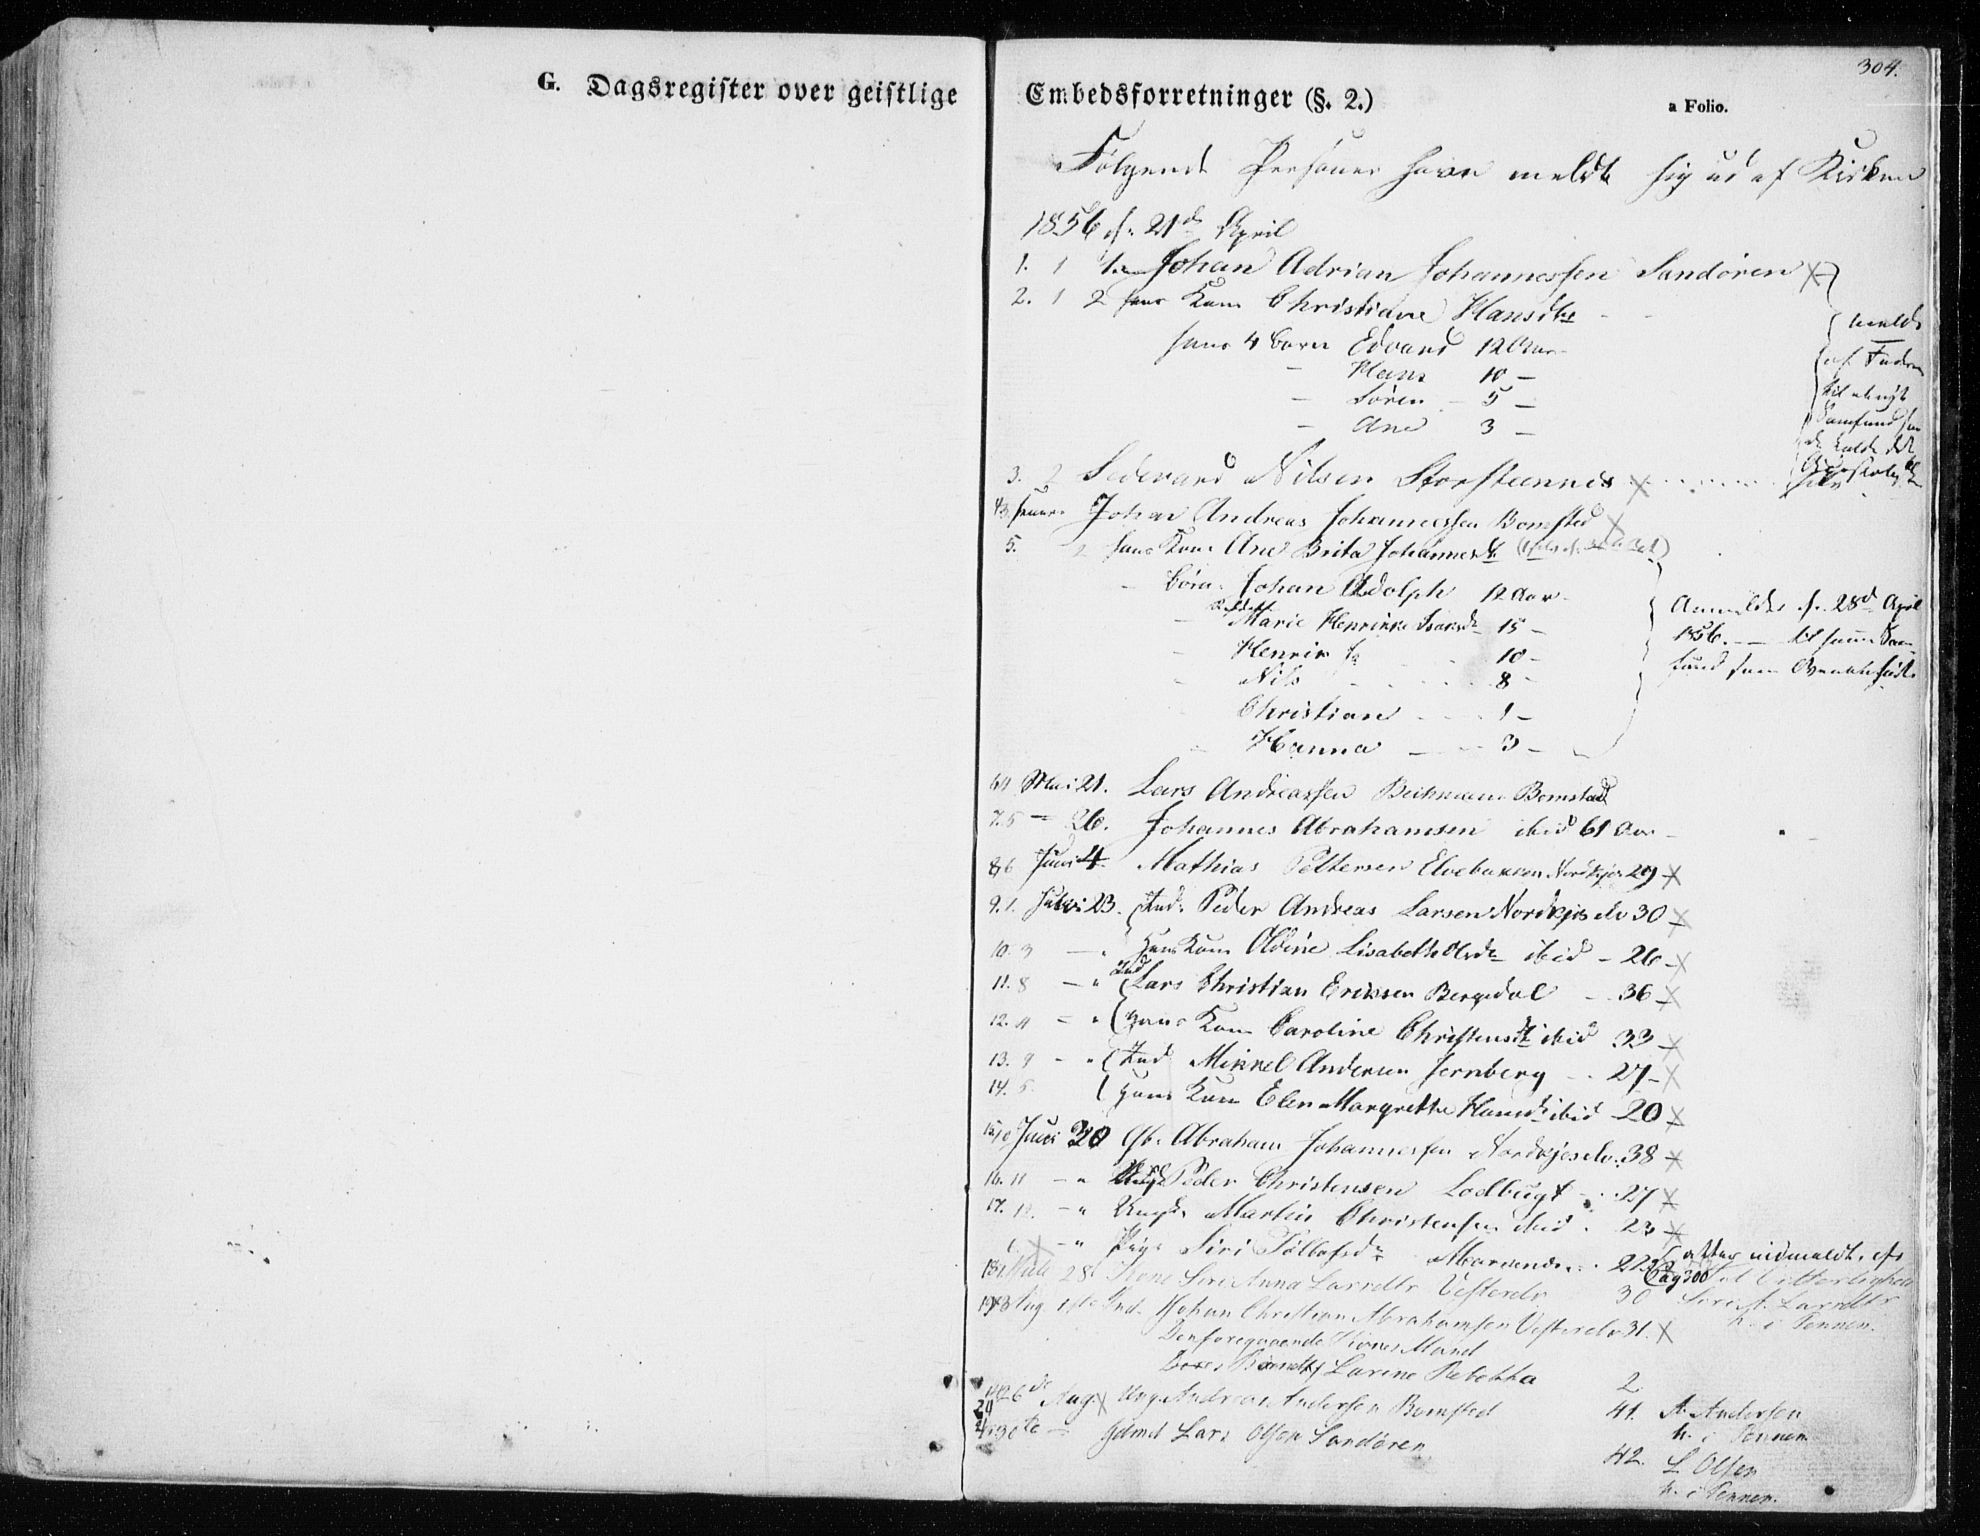 304.
G. Dagsregister over geistlige Embedsforretninger (§. 2.)
a Folio.
Følgende Personer have meldt sig ud af Kirken
1856 d. 21de April
1. 1 Johan Adrian Johannessen Sandøren X
2. 1 2 hans Kone Christiane Hansdtr
hans 4 Børn Edvard 12 Aar
- Hans 10 -
- Søren - 5 -
- Ane 3 -
meldt
af Faderen
til et nyt
Samfund som
de kalde det
3. 2 Nilsen Storstennes X
Johan Andreas Johannessen Bomsted X
5. 2 hans Kone Ane Brita Johannesdtr
Børn Johan Adolph 12 Aar
- Marie Henrikke Isaksdr 15 -
- Henrik 10 -
- Nils 8 -
- Christian 1 -
- Hanna 3 -
Anmeldte d. 28de April
1856 - til samme Sam
fund som Ovenanførte
6 4 Mai 21. Lars Andreassen Beckmann Bomstad
7. 5 - 26. Johannes Abrahamsen ibid 61 Aar -
8. 6 Juni 4. Mathias Pettersen Elvebakken Nordkjos 29 X
9. 23. Ind. Peder Andreas Larsen Nordkjoselv 30 X
10. 3 - " Hans Kone Oldine Lisabeth Olsdr ibid - 26 X
11. 8 - " Ind Lars Christian Eriksen Bergedal - 36 X
12. 4 - " Hans Kone Caroline Christensdtr ibid 33 X
13. 9 - " Ind Mikkel Andersen Jernberg - 27 - X
14. 5. Hans Kone Elen Margrethe Hansdr ibid 20 X
15. 10 Juni 30 Gb. Abraham Johannessen Nordkjoselv. 38 X
16. 11 - " Peder Christensen Lodbugt - 27 X
17. 12. - " Ungk. Martin Christensen ibid. 23 X
X - " Pige Siri Tollefsdr
atter indmeldt
28. Kone Siri Anna Larsdtr Vesterelv 30
Siri A. Larsdtr
h. i Pennen.
Aug 1ste Ind. Johan Christian Abrahamsen Vesterelv 31. X
Denforegaaende Kones Mand
Larine Rebekka 2
26de Aug. X Ung. Andreas Andersen Bomsted 41. A. Andersen
h. i Pennen
Gdmd Lars Olsen Sandøren 42. L Olsen
h. i Pennen.